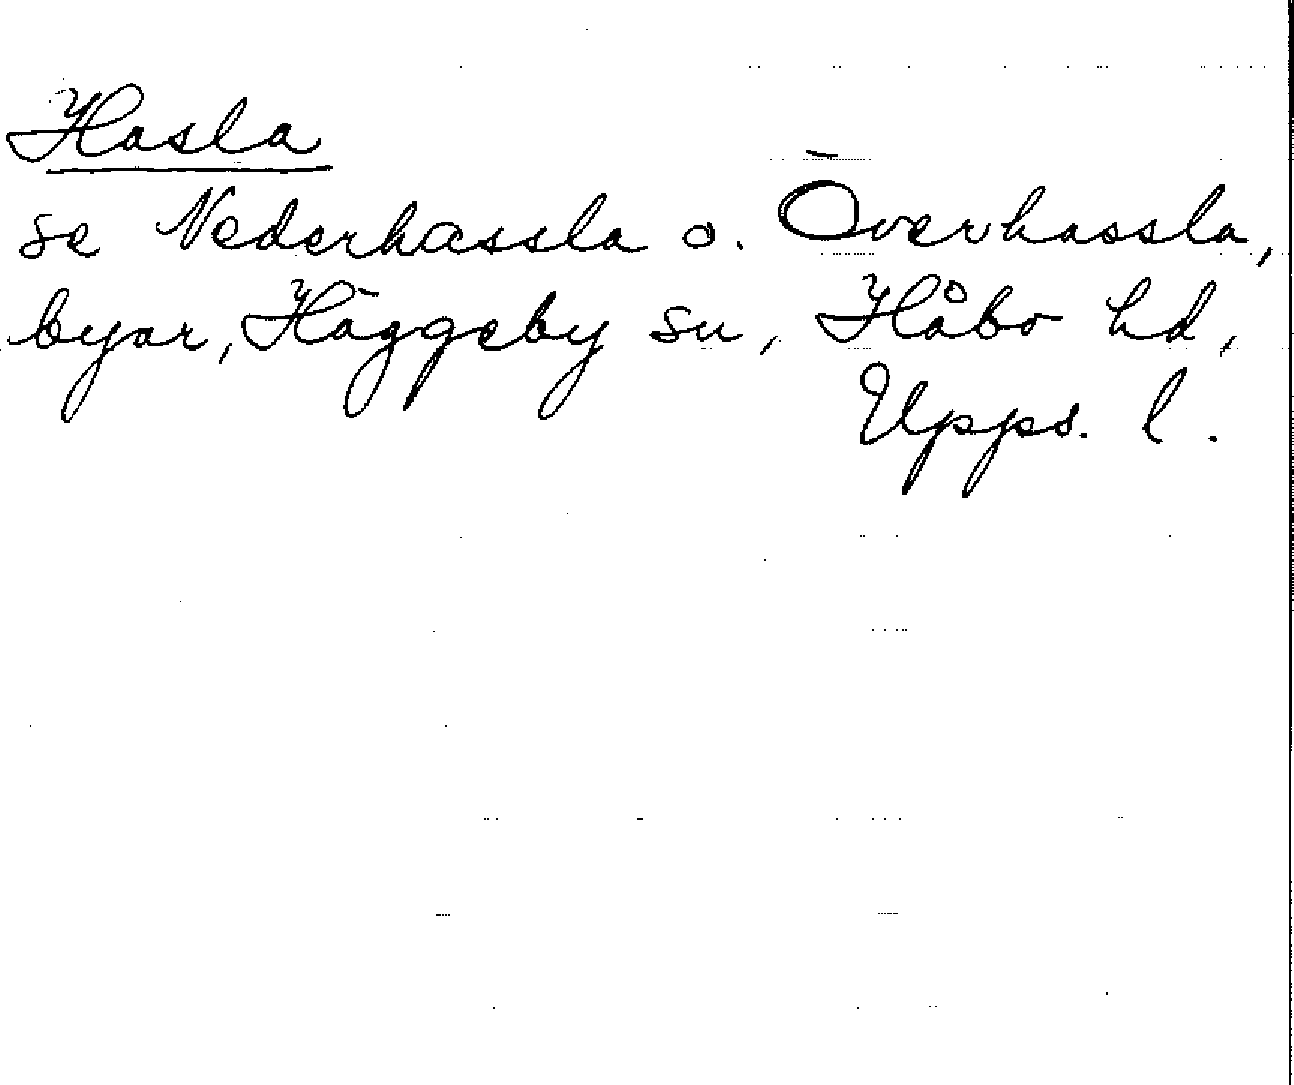 Hasla
se Nederhassla o. Överhassla,
byar, Häggeby sn, Håbo hd,
Upps. l.